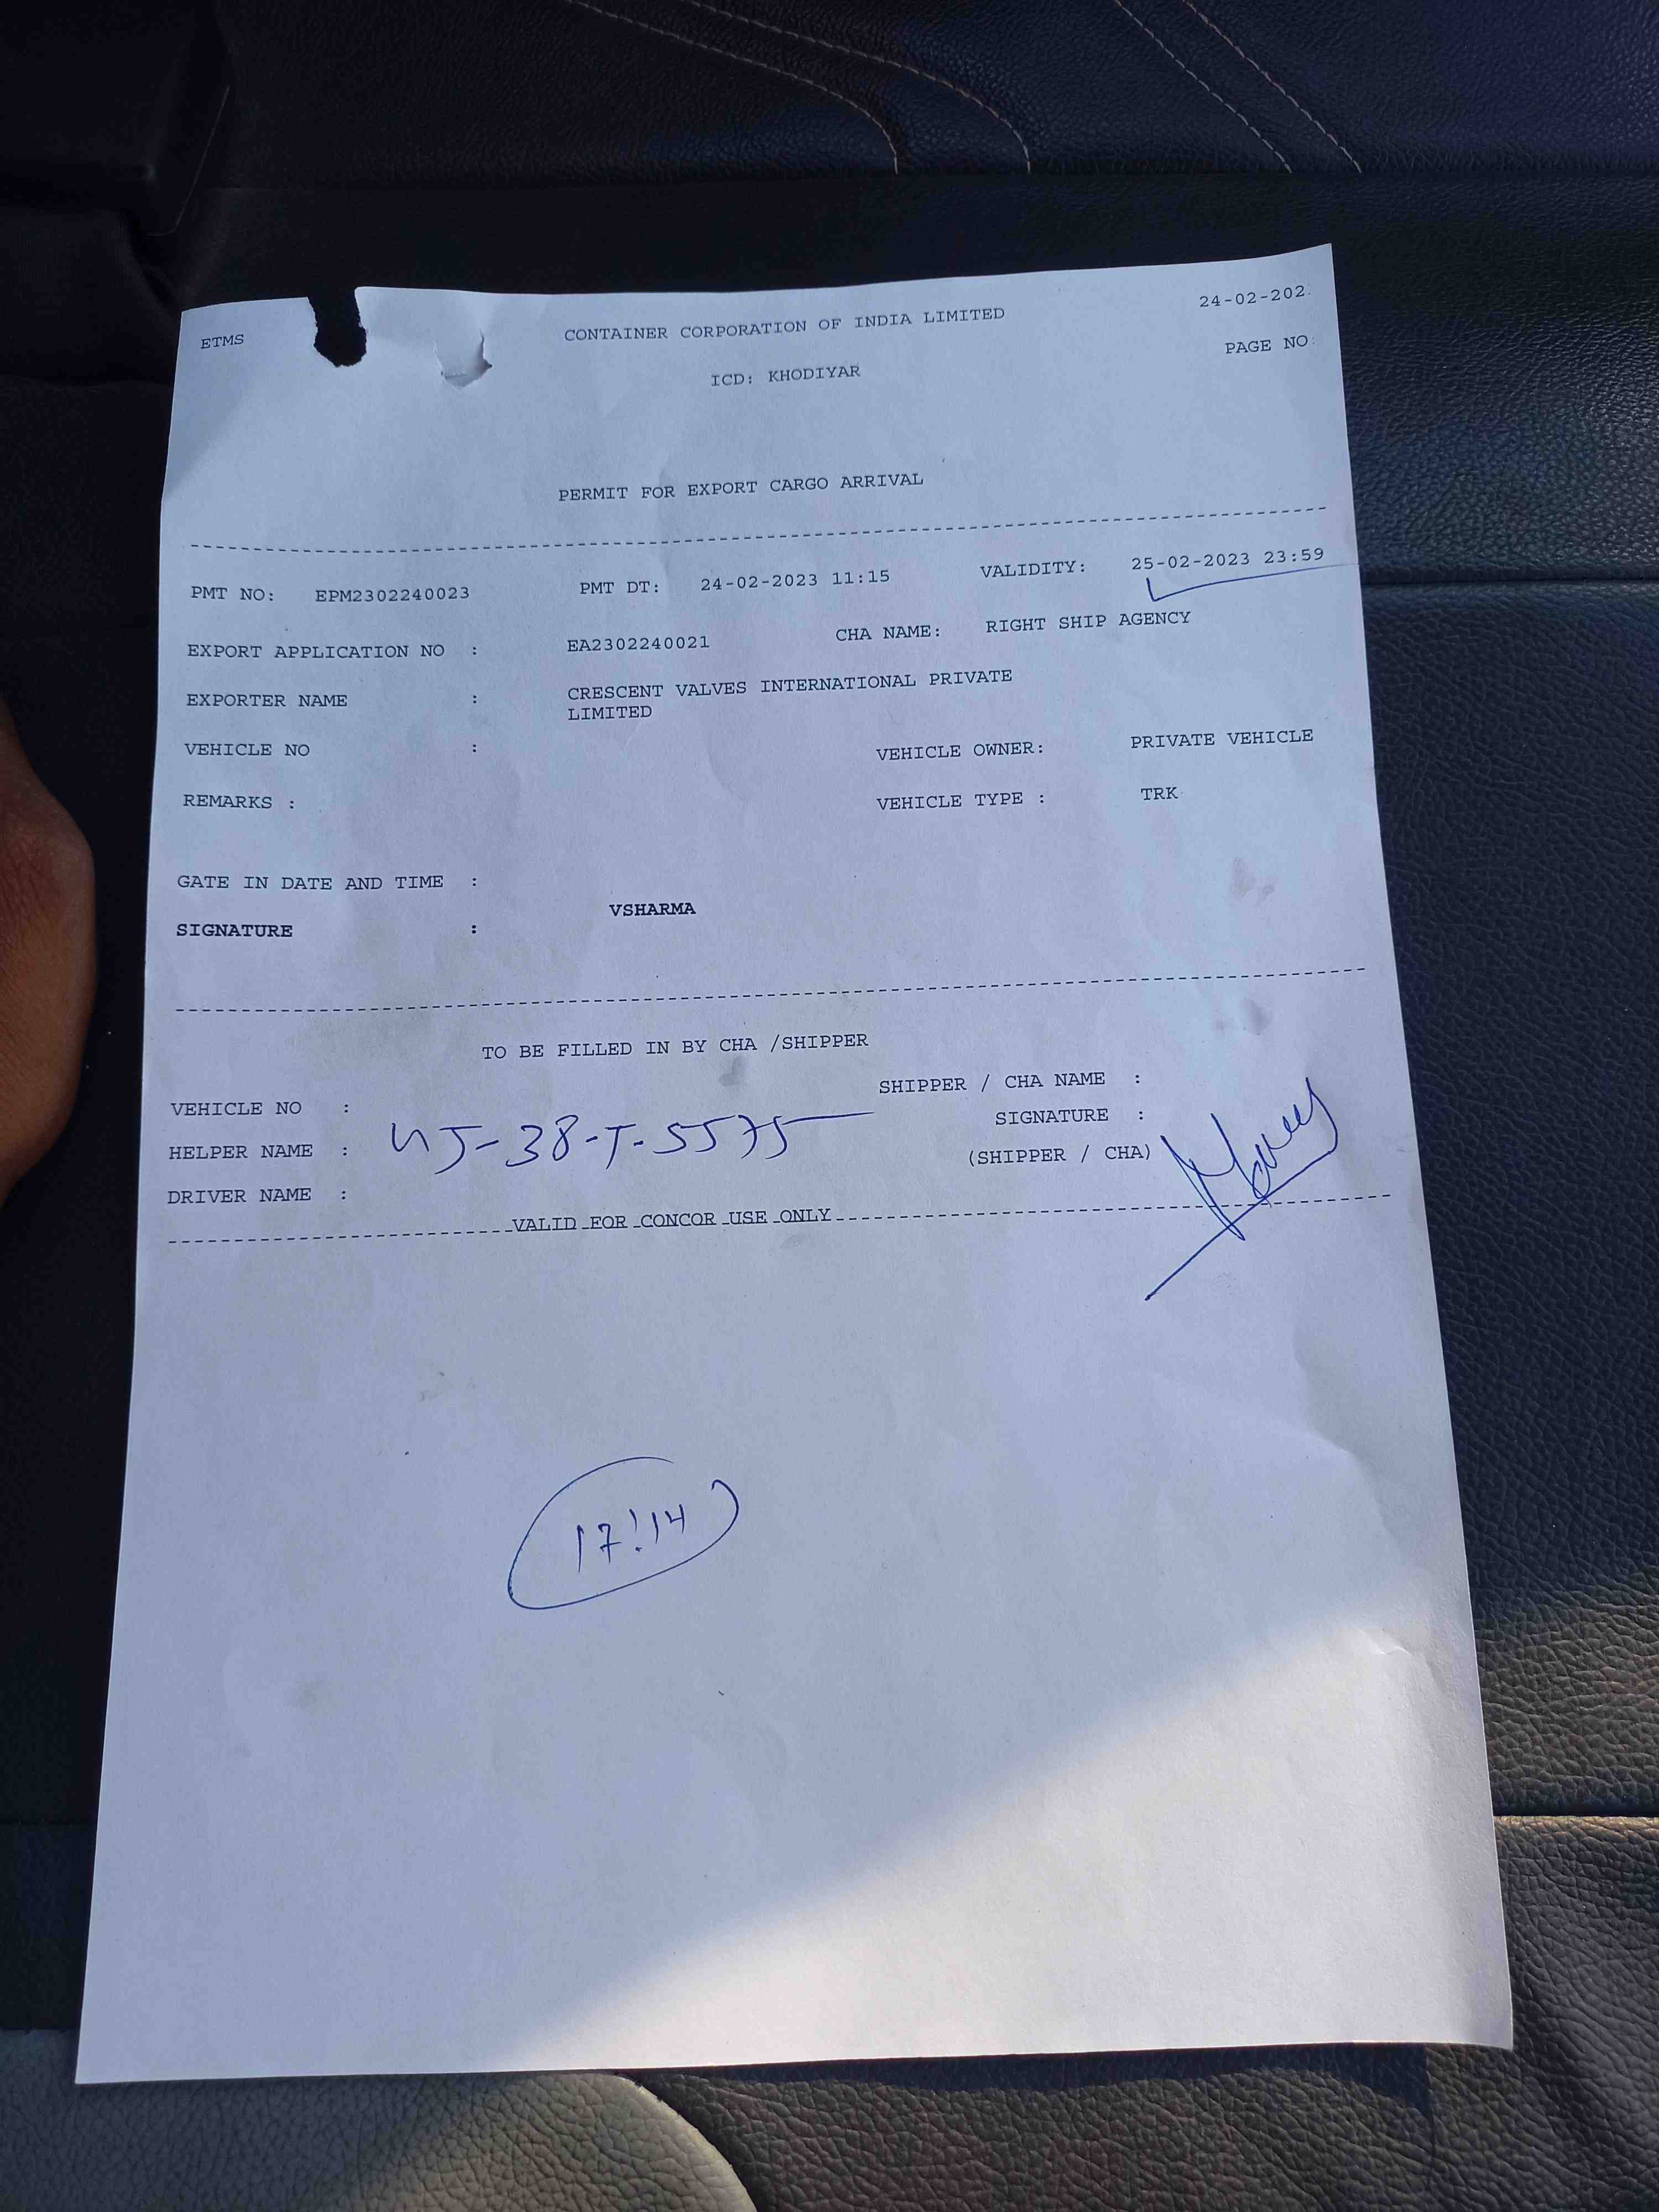 ETMS CONTAINER CORPORATION OF INDIA LIMITED 24-02-202
ICD: KHODIYAR PAGE NO:
PERMIT FOR EXPORT CARGO ARRIVAL
PMT NO: EPM2302240023 PMT DT: 24-02-2023 11:15 VALIDITY: 25-02-2023 23:59
EXPORT APPLICATION NO : EA2302240021 CHA NAME: RIGHT SHIP AGENCY
EXPORTER NAME : CRESCENT VALVES INTERNATIONAL PRIVATE
LIMITED
VEHICLE NO : VEHICLE OWNER: PRIVATE VEHICLE
REMARKS : VEHICLE TYPE : TRK
GATE IN DATE AND TIME :
VSHARMA
SIGNATURE :
TO BE FILLED IN BY CHA /SHIPPER
VEHICLE NO : SHIPPER / CHA NAME :
SIGNATURE :
HELPER NAME : GJ-38-T-5575 (SHIPPER / CHA)
DRIVER NAME :
VALID FOR CONCOR USE ONLY
17:14